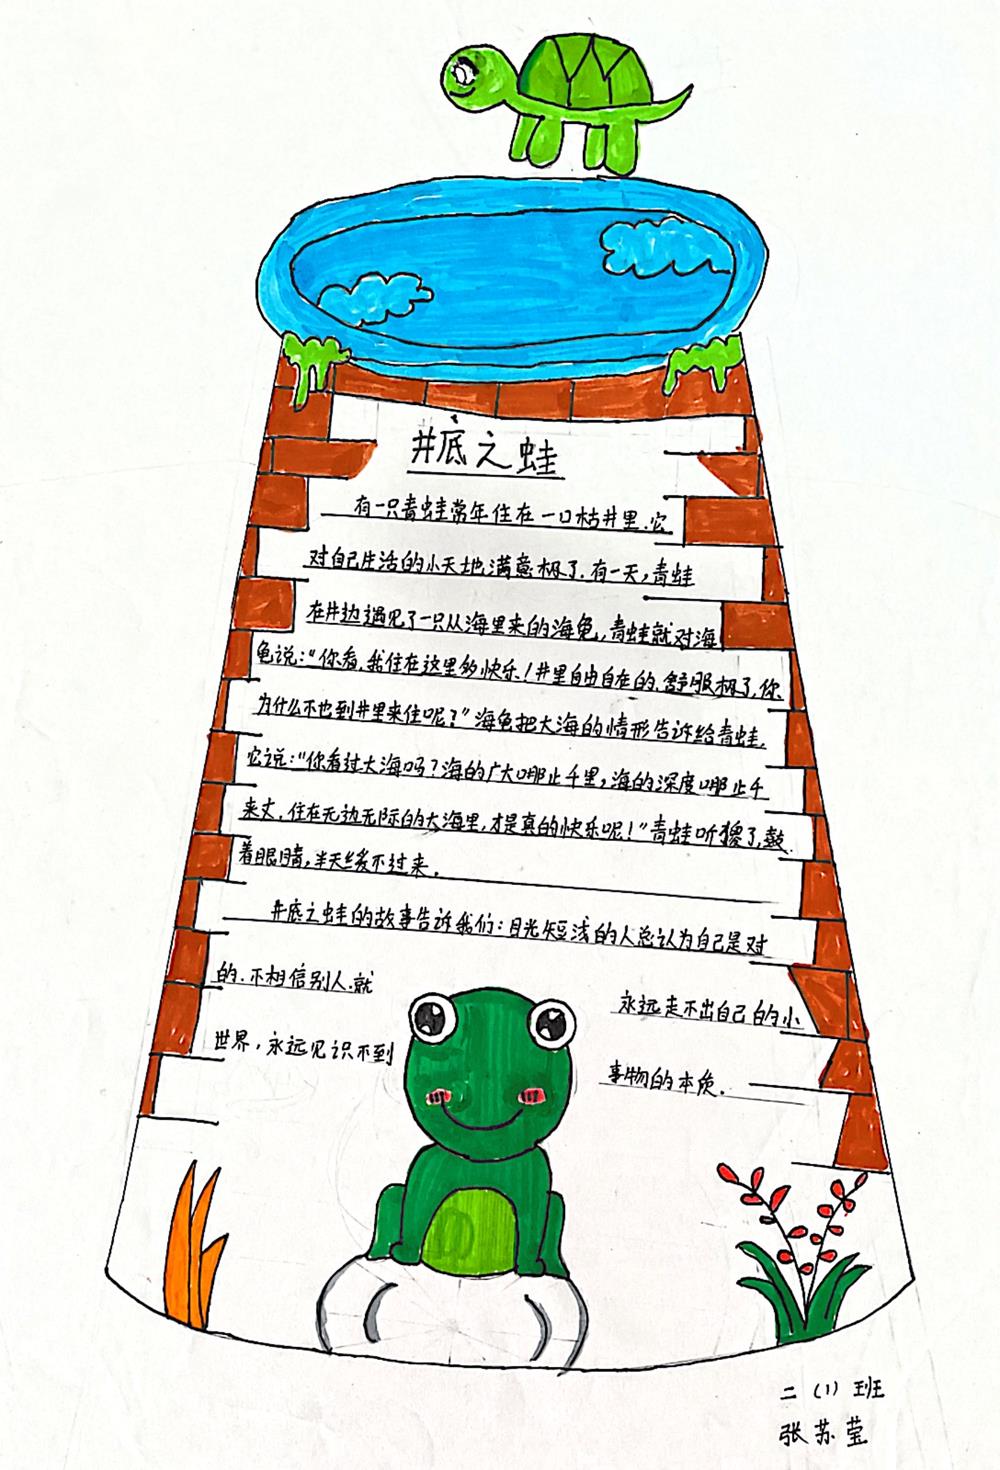 井底之蛙
有一只青蛙常年住在一口枯井里.它
对自己生活的小天地满意极了.有一天,青蛙
在井边遇见了一只从海里来的海龟,青蛙就对海
龟说:“你看,我住在这里多快乐!井里自由自在的,舒服极了,你
为什么不也到井里来住呢?”海龟把大海的情形告诉给青蛙,
它说:“你看过大海吗?海的广大哪止千里,海的深度哪止千
来丈,住在无边无际的大海里,才是真的快乐呢!”青蛙听傻了,鼓
着眼睛,半天缓不过来.
井底之蛙的故事告诉我们:目光短浅的人总认为自己是对
的.不相信别人.就 永远走不出自己的小
世界,永远见识不到 事物的本质.
二(1)班
张苏莹